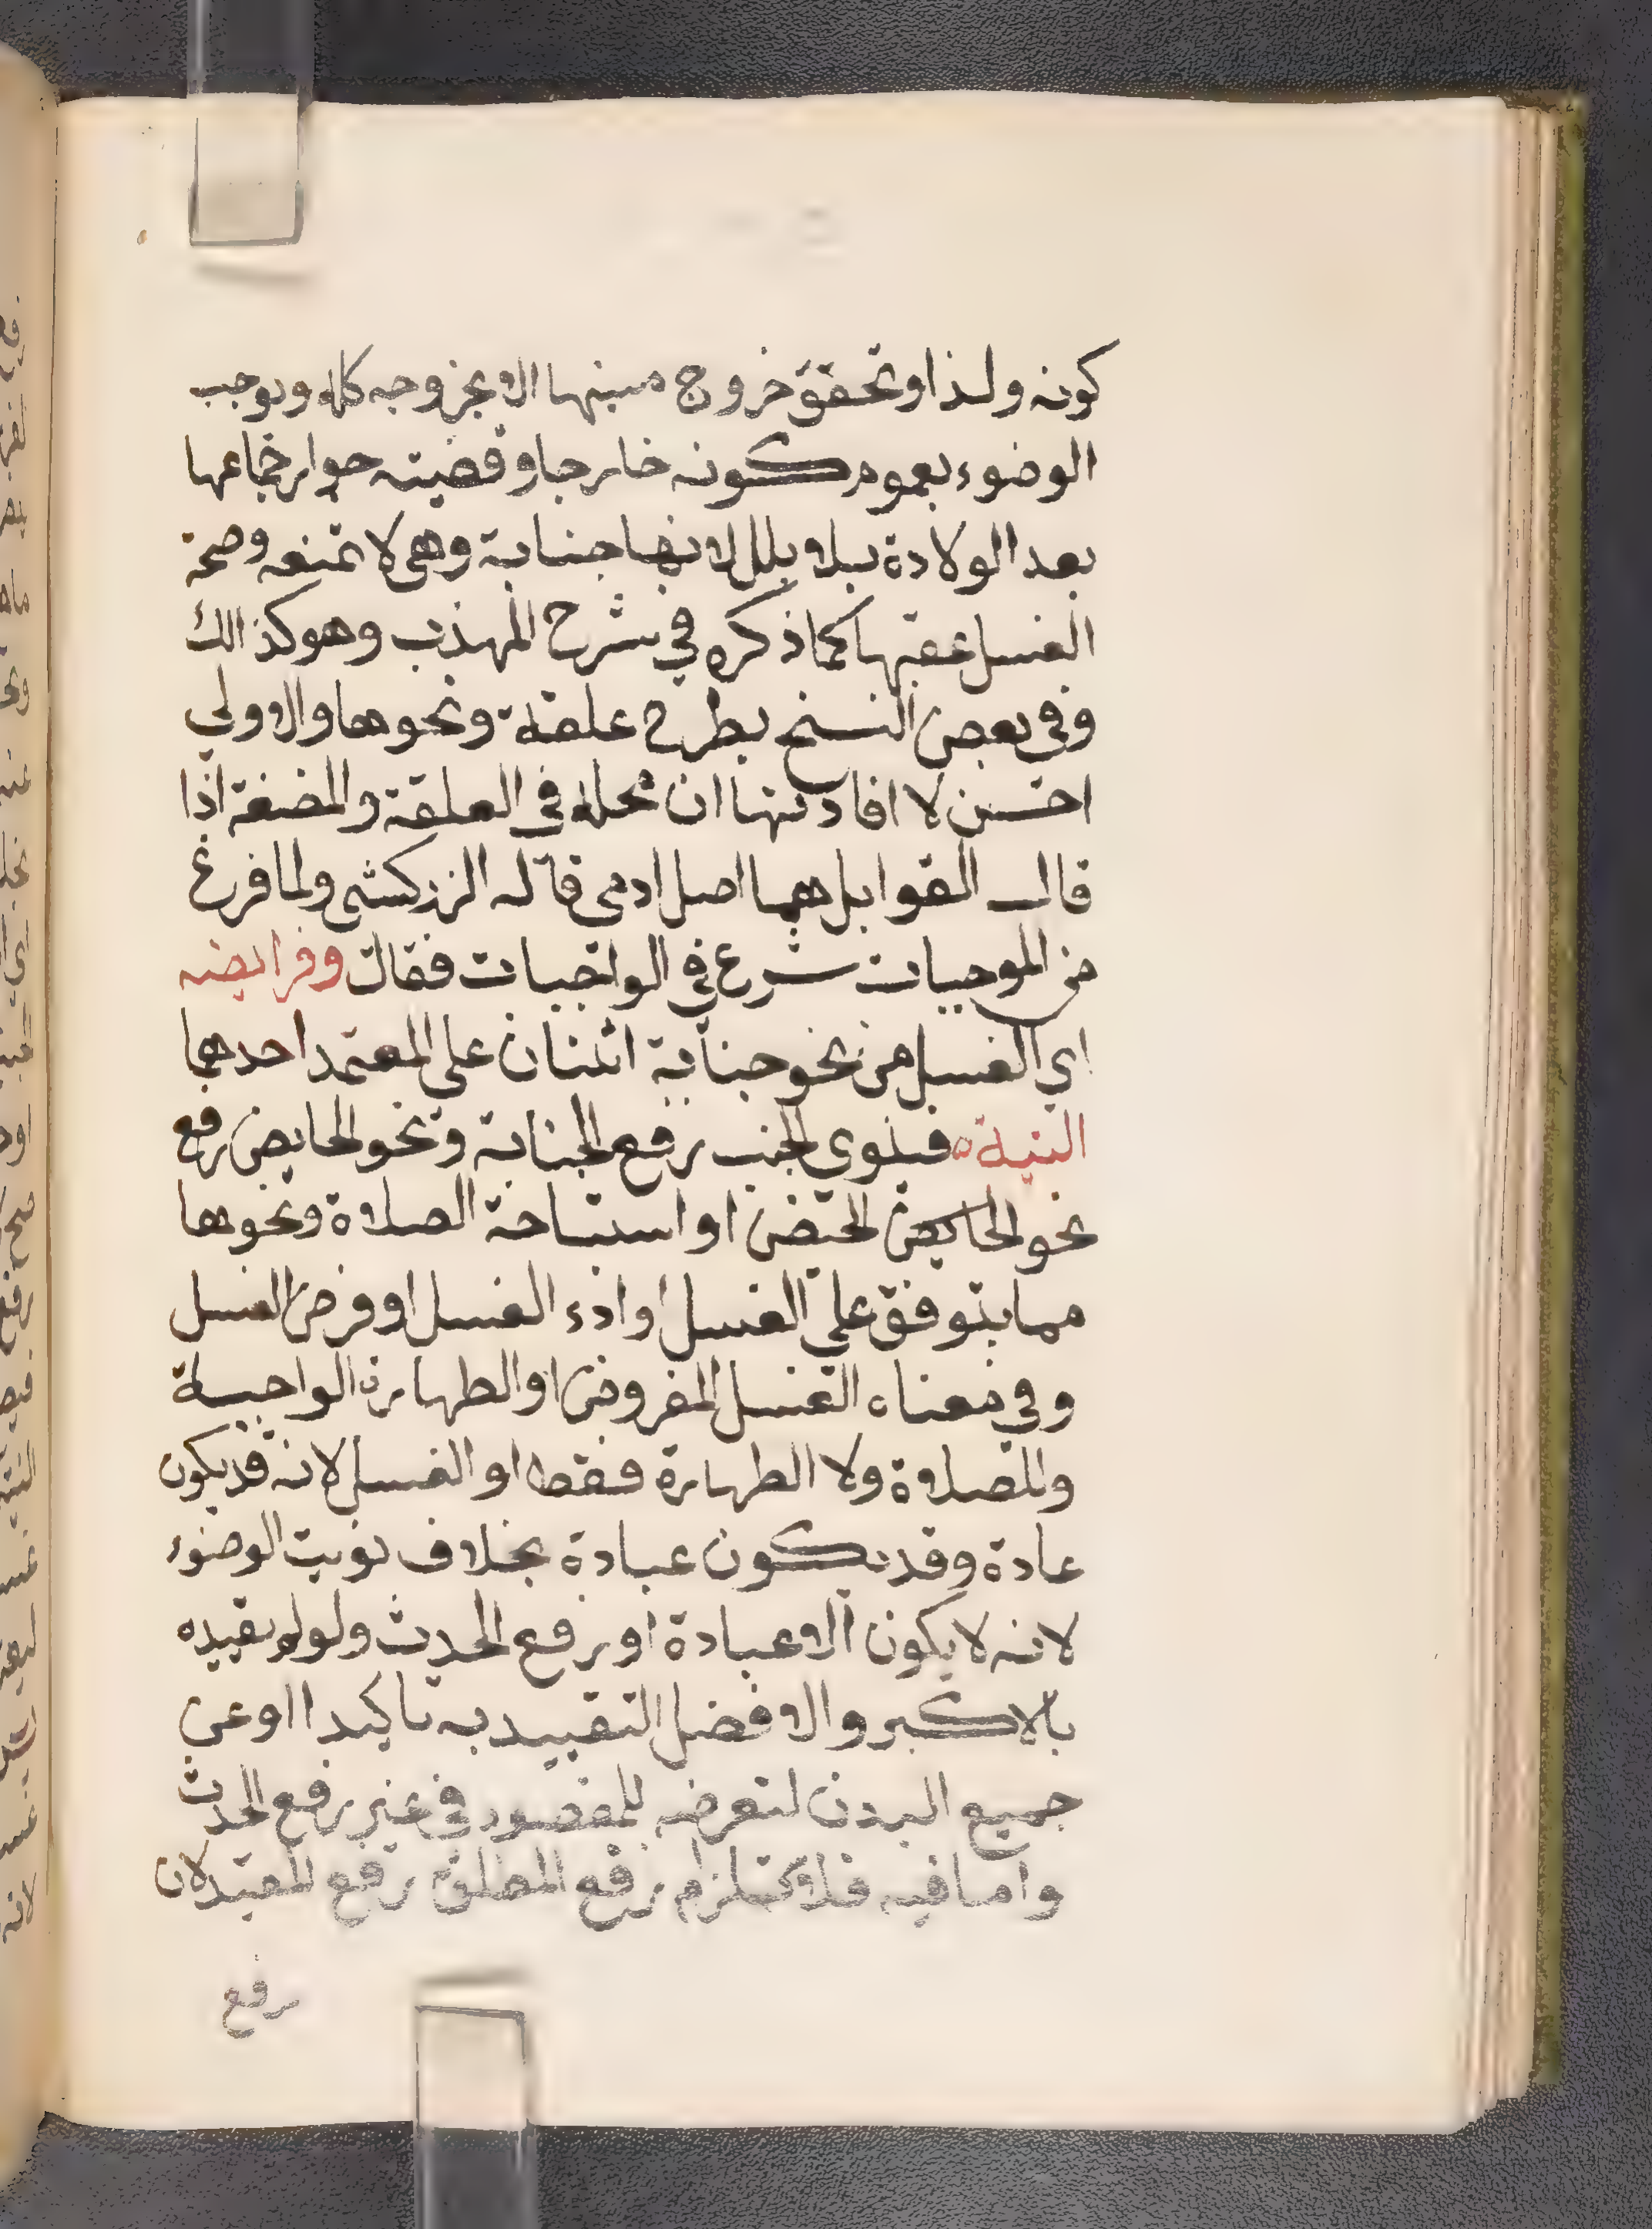 كونه ولذا وتحقق خروج منيها الا بخروجه كله ويوجب
الوضوء بعموم كونه خارجا وقضيته جواز جماعها
بعد الولادة بلا بلل لانها جنابة وهى لا تمنعه وصحة
الغسل عقبها كما ذكره في شرح المهذب وهو كذالك
وفي بعض النسخ بطرح علقة ونحوها والاولي
احسن لافادتها ان محله في العلقة والمضغة اذا
قال القوابل هما اصل ادمى قاله الزركشى ولما فرغ
من الموجبات شرع في الواجبات فقال وفرايضه
اي الغسل من نحو جنابة اثنان علي المعتمد احدهما
النية فينوي الجنب رفع الجنابة ونحو الحايض رفع
نحو الحايض الحيض او استباحة الصلاة ونحوها
مما يتوقف علي الغسل او اداء الغسل او فرض الغسل
وفي معناه الغسل المفروض او الطهارة الواجبة
وللصلاة ولا الطهارة فقط او الغسل لانه قد يكون
عادة وقد يكون عبادة بخلاف نويت الوضوء
لانه لا يكون الا عبادة او رفع الحدث ولو لم يقيده
بالاكبر والافضل التقييد به تاكيدا او عن
جميع البدن لتعرضه للمقصود في غير رفع الحدث
واما فيه فلاستلزام رفع المطلق رفع المقيد لان
رفع